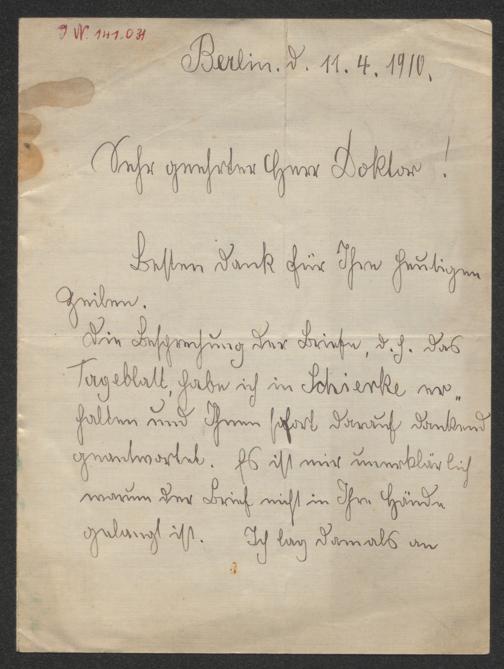 J.N. 141.031
Berlin. d. 11. 4. 1910.
Sehr geehrter Herr Doktor!
Besten Dank für Ihre heutigen
Zeilen.
Die Besprechung der Briefe, d. h. das
Tageblatt, habe ich in Schierke er„
halten und Ihnen sofort darauf dankend
geantwortet. Es ist mir unerklärlich
warum der Brief nicht in Ihre Hände
gelangt ist. Ich lag damals an